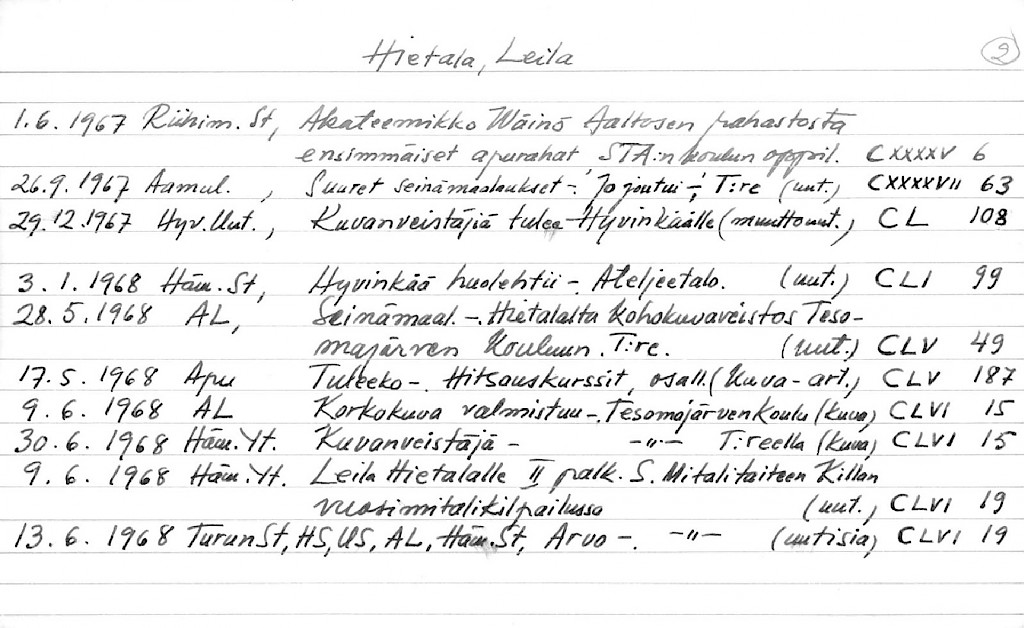 Hietala, Leila 2
1.6. 1967 Riihim. St, Akateemikko Wäinö Aaltosen rahastosta
ensimmäiset apurahat STA:n koulun oppil. CXXXXV 6
26.9. 1967 Aamul. , Suuret seinämaalaukset - T:re (uut.) CXXXXVII 63
29.12.1967 Hyv.Uut., Kuvanveistäjiä tulee Hyvinkäälle (muuttouut.) CL 108
3. 1. 1968 Häm. St, Hyvinkää huolehtii -. Ateljeetalo. (uut.) CLI 99
28.5.1968 AL, Seinämaal. -. Hietalalta kohokuvaveistos Teso-
majärven kouluun. T:re. (uut.) CLV 49
17.5. 1968 Apu Tuleeko -. Hitsauskurssit, osall. (kuva-art.) CLV 187
9.6. 1968 AL Korkokuva valmistuu -. Tesomajärven koulu (kuva) CLVI 15
30.6. 1968 Häm.Yt. Kuvanveistäjä - -"- T:reella (kuva) CLVI 15
9.6. 1968 Häm.Yt. Leila Hietalalle II palk. S. Mitalitaiteen Killan
vuosimitalikilpailussa (uut.) CLVI 19
13.6. 1968 Turun St, HS, US, AL, Häm.St, Arvo -. -"- (uutisia) CLVI 19